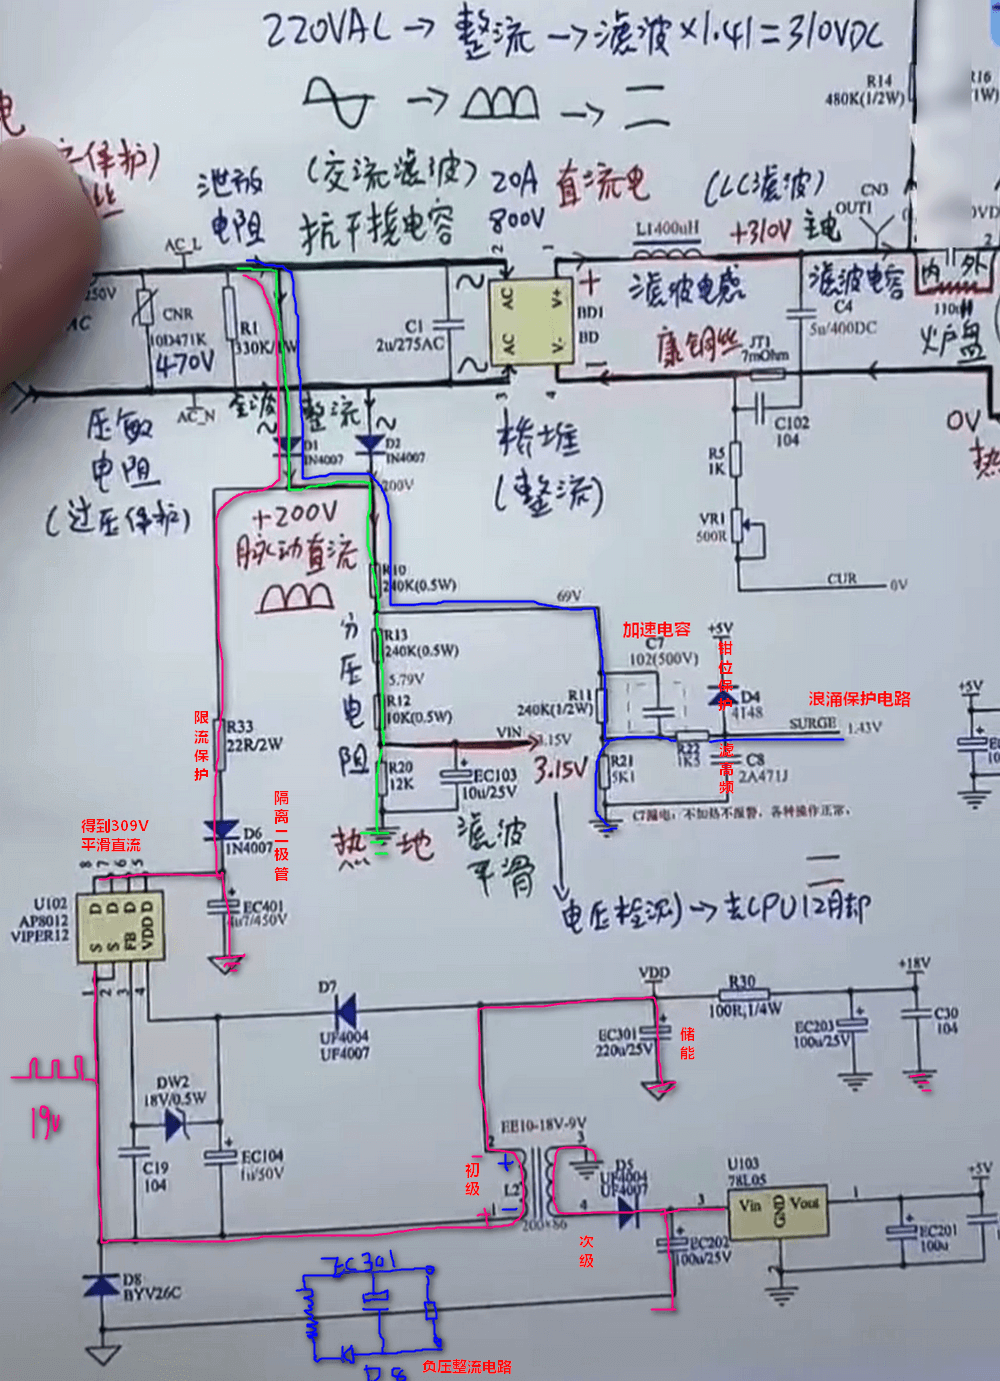 220VAC → 整流 → 滤波×1.41=310VDC
R14
480K(1/2W)
电
保护)
丝
泄放
电阻
(交流滤波)
抗干扰电容
20A
800V
直流电
(LC滤波)
CN3
OUT1
AC_L
L1400uH
+310V
主电
滤波电感
滤波电容
C4
5u/400DC
内
外
火炉盘
250V
AC
CNR
10D471K
470V
R1
330K/
C1
2u/275AC
AC
AC
V+
V-
2
1
3
4
+
BD1
BD
康铜丝
JT1
7mOhm
C102
104
0V
热
AC_N
全波
整流
压敏
电阻
(过压保护)
D1
IN4007
D2
IN4007
桥堆
(整流)
R5
1K
VR1
500R
CUR
0V
200V
+200V
脉动直流
R10
240K(0.5W)
69V
分
压
电
阻
R13
240K(0.5W)
5.79V
R12
10K(0.5W)
加速电容
C7
102(500V)
+5V
钳位保护
D4
4148
R11
240K(1/2W)
浪涌保护电路
SURGE
1.43V
VIN
3.15V
3.15V
R20
12K
EC103
10u/25V
R21
5K1
R22
1K5
滤高频
C8
2A471J
C7漏电：不加热不报警，各种操作正常，
热地
滤波
平滑
电压检测 → 去CPU12脚
限流保护
R33
22R/2W
隔离二极管
D6
1N4007
得到309V
平滑直流
8 7 6 5
U102
AP8012
VIPER12
D D D VDD
S S FB
1 2 3 4
EC401
4u7/450V
+5V
19v
D7
UF4004
UF4007
VDD
EC301
220u/25V
储能
R30
100R,1/4W
+18V
EC203
100u/25V
C30
104
DW2
18V/0.5W
C19
104
EC104
1u/50V
EE10-18V-9V
2
3
初级
L2
1
4
200×86
次级
D5
UF4004
UF4007
U103
78L05
Vin
GND
Vout
3
1
2
+5V
EC202
100u/25V
EC201
100u
D8
BYV26C
EC301
D8
负压整流电路